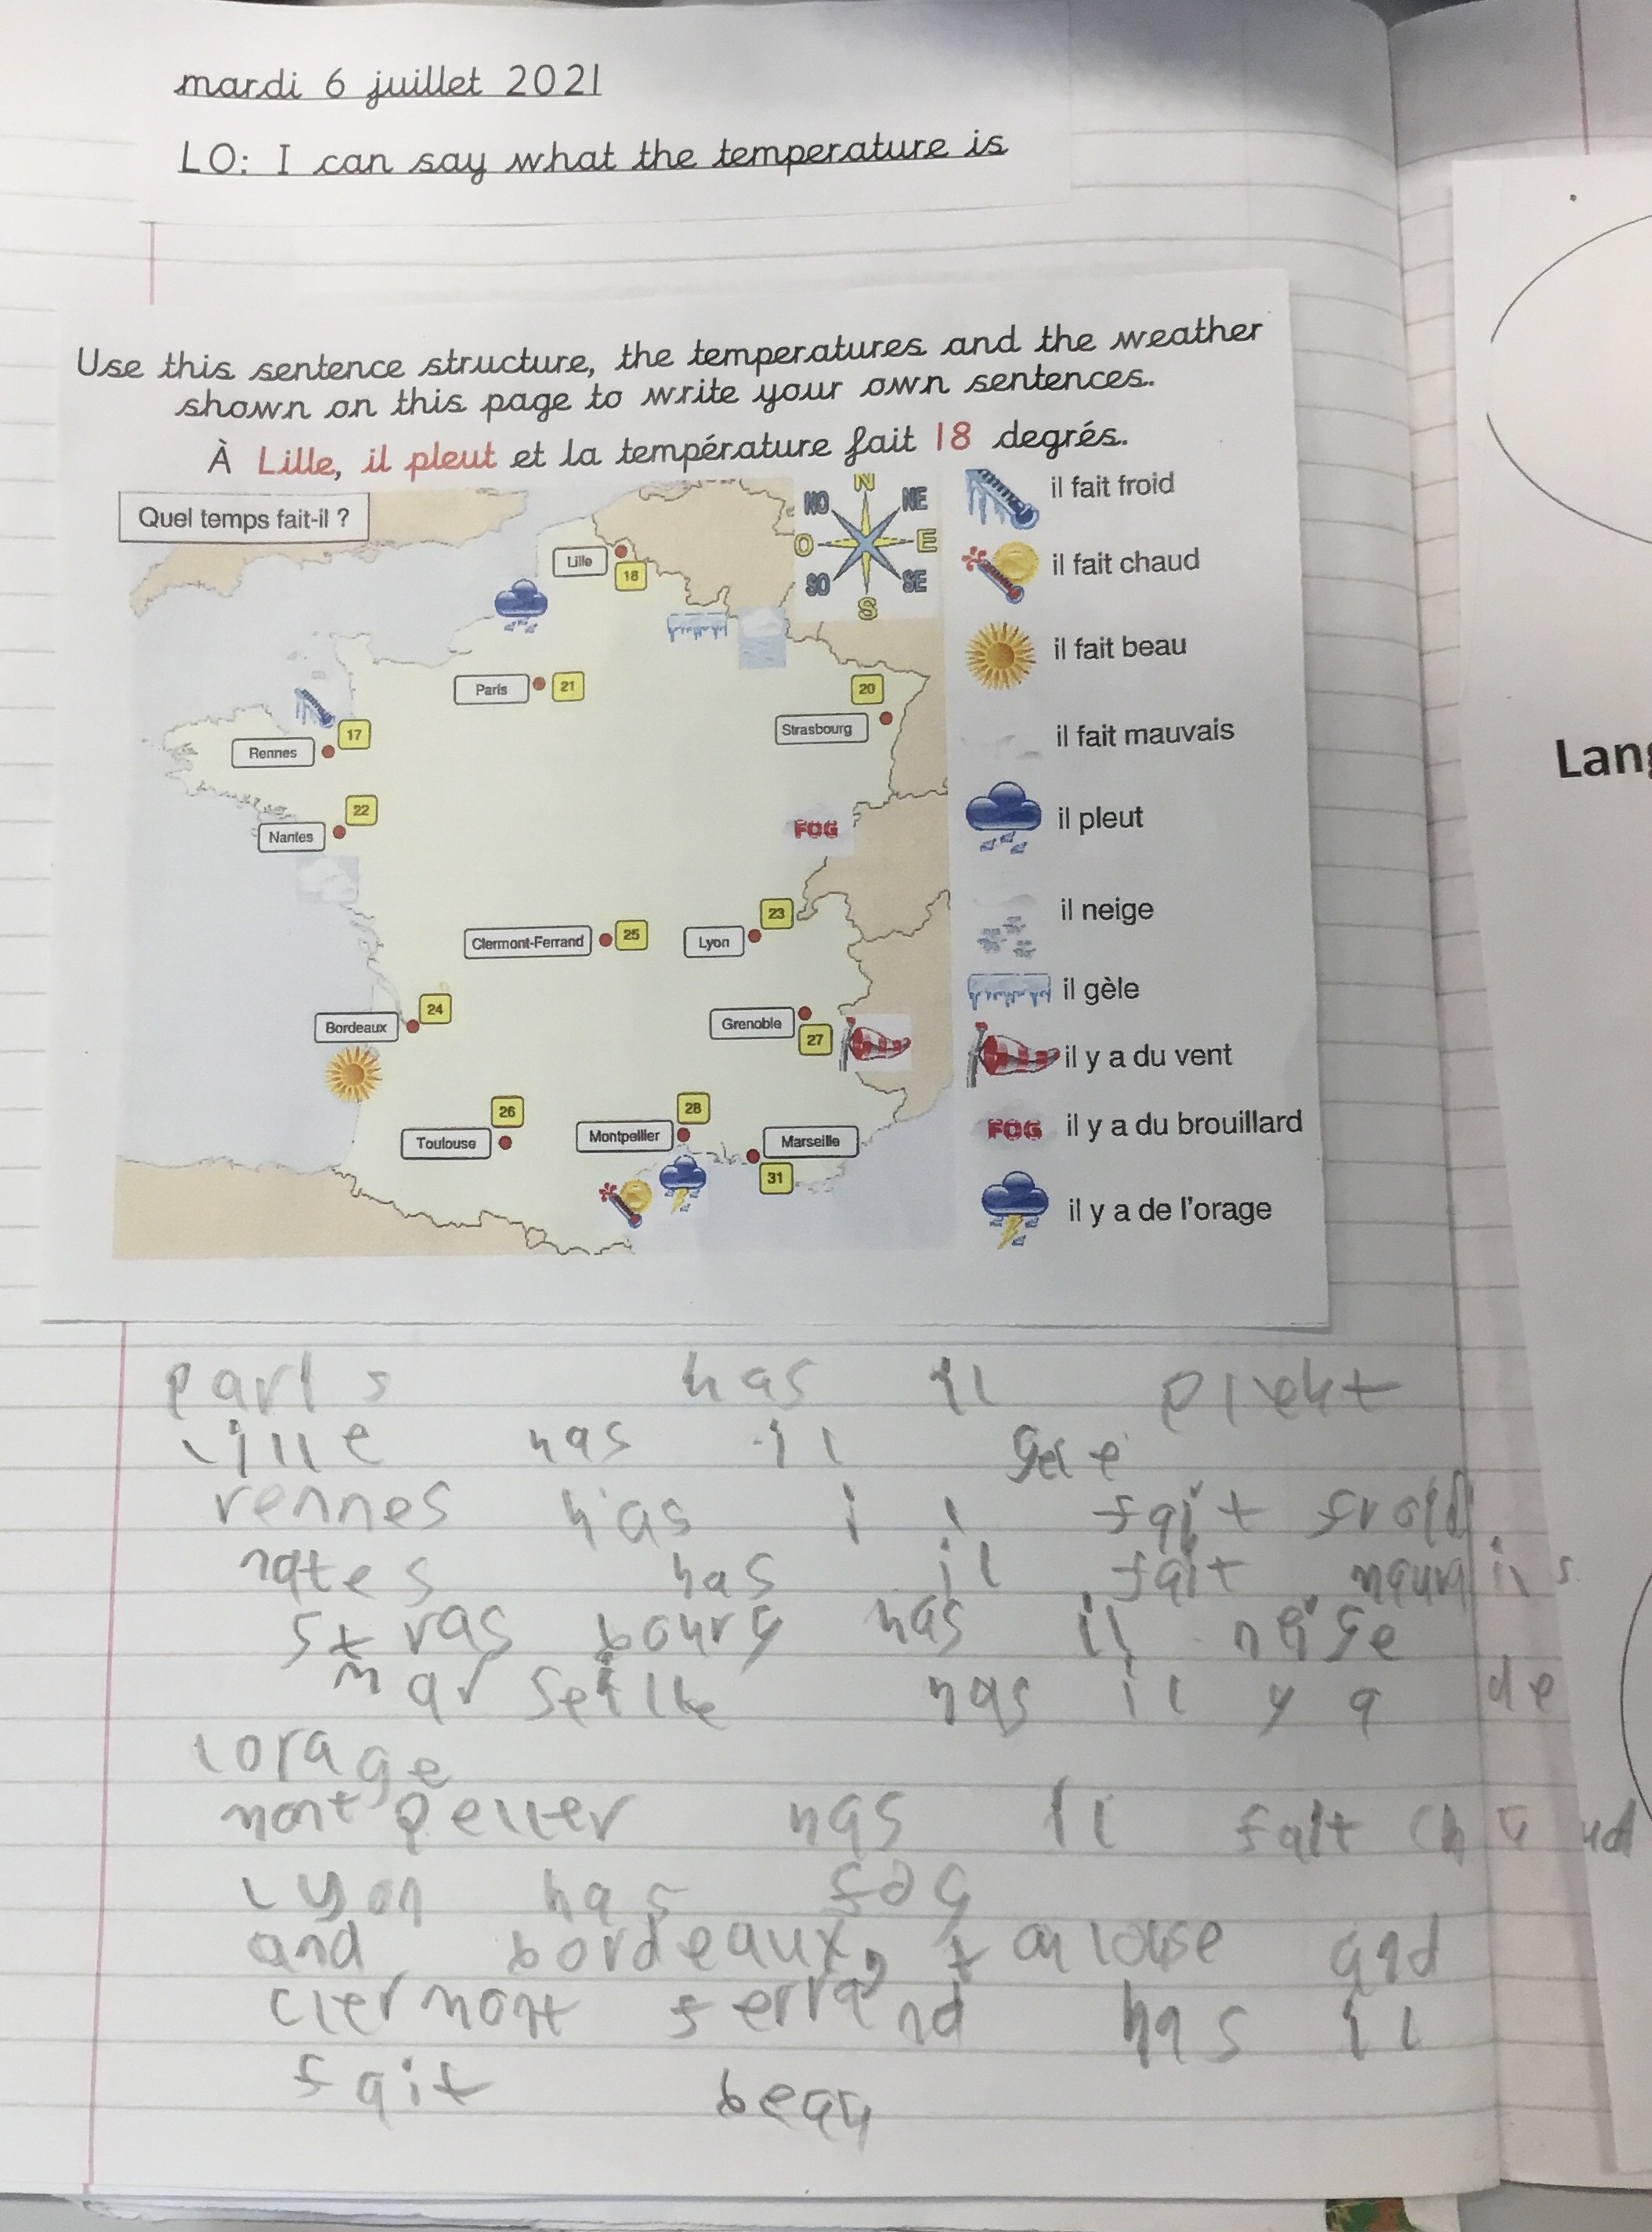 mardi 6 juillet 2021
LO: I can say what the temperature is
Use this sentence structure, the temperatures and the weather
shown on this page to write your own sentences.
À Lille, il pleut et la température fait 18 degrés.
Quel temps fait-il ?
N
NO
NE
O
E
SO
SE
S
Lille
18
Paris
21
20
Strasbourg
17
Rennes
22
Nantes
FOG
23
Clermont-Ferrand
25
Lyon
24
Bordeaux
Grenoble
27
26
Toulouse
28
Montpellier
Marseille
31
il fait froid
il fait chaud
il fait beau
il fait mauvais
il pleut
il neige
il gèle
il y a du vent
FOG il y a du brouillard
il y a de l'orage
Lang
paris has il pleut
lille has il gele
rennes has il fait froid
nates has il fait mauvais
stras bourg has il neige
mar seille has il y a de
lorage
mont peller has il fait chaud
lyon has fog
and bordeaux, toulouse and
clermont ferrand has il
fait beau